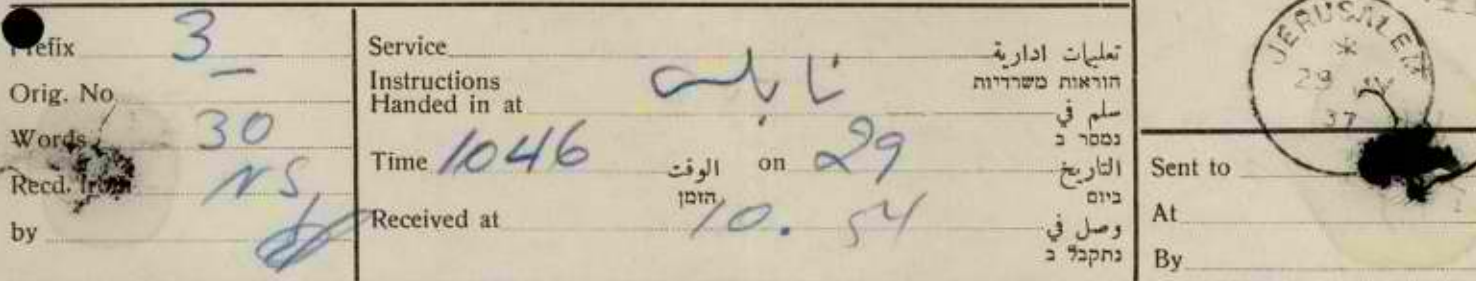 Prefix 3
Orig. No
Words 30
Recd. from NS
by
Service تعليمات ادارية
Instructions הוראות משרדיות
Handed in at نابلس سلم في
נמסר ב
Time 1046 الوقت on 29 التاريخ
הזמן ביום
Received at 10.54 وصل في
נתקבל ב
JERUSALEM
29
37
Sent to
At
By